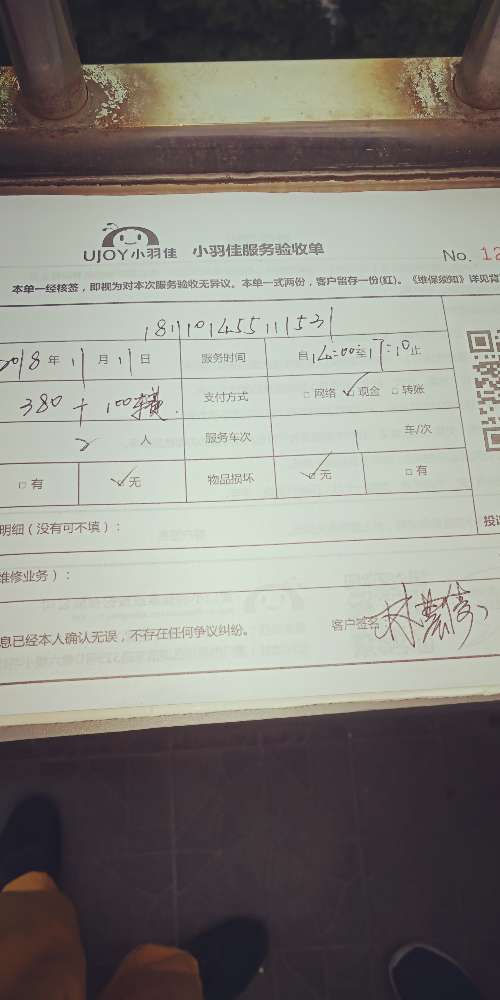 UJOY小羽佳 小羽佳服务验收单 No. 12
本单一经核签，即视为对本次服务验收无异议。本单一式两份，客户留存一份(红)。《维保须知》详见背
2018 年 11 月 11 日 服务时间 自 14:00 至 17:10 止
380 + 100 支付方式 □ 网络 ☑ 现金 □ 转账
2 人 服务车次 1 车/次
□ 有 ☑ 无 物品损坏 ☑ 无 □ 有
明细（没有可不填）： 投
维修业务）：
息已经本人确认无误，不存在任何争议纠纷。 客户签名